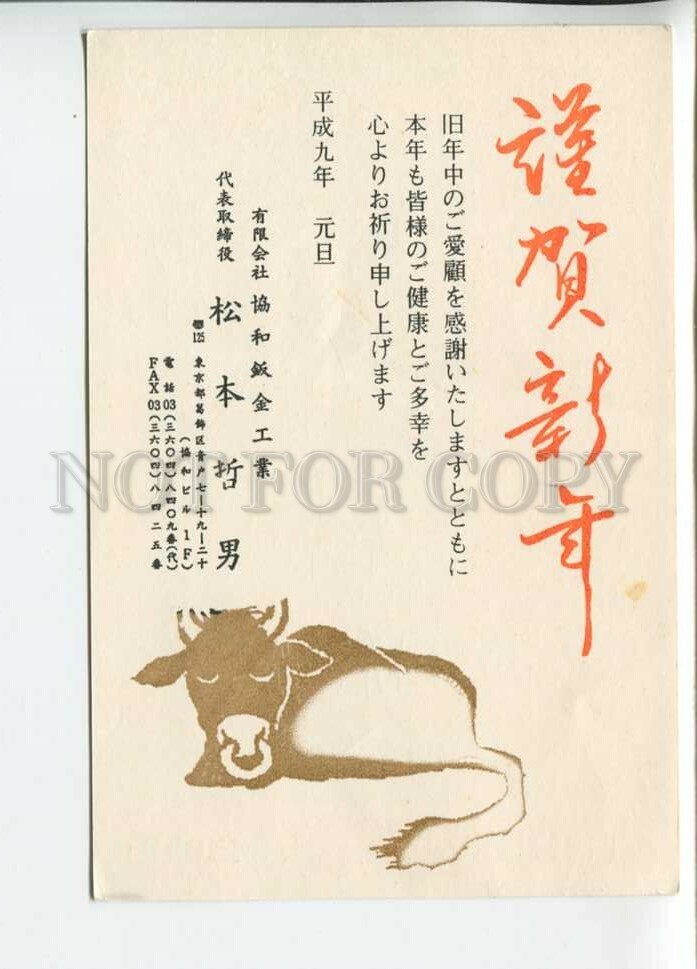 謹賀新年
旧年中のご愛顧を感謝いたしますとともに
本年も皆様のご健康とご多幸を
心よりお祈り申し上げます
平成九年 元旦
有限会社 協和鈑金工業
代表取締役 松本哲男
〠125 東京都葛飾区青戸七ー十九ー二十
(協和ビル1F)
電話03(三六〇四)八四〇九番(代)
FAX03(三六〇四)八四二五番
NOT FOR COPY